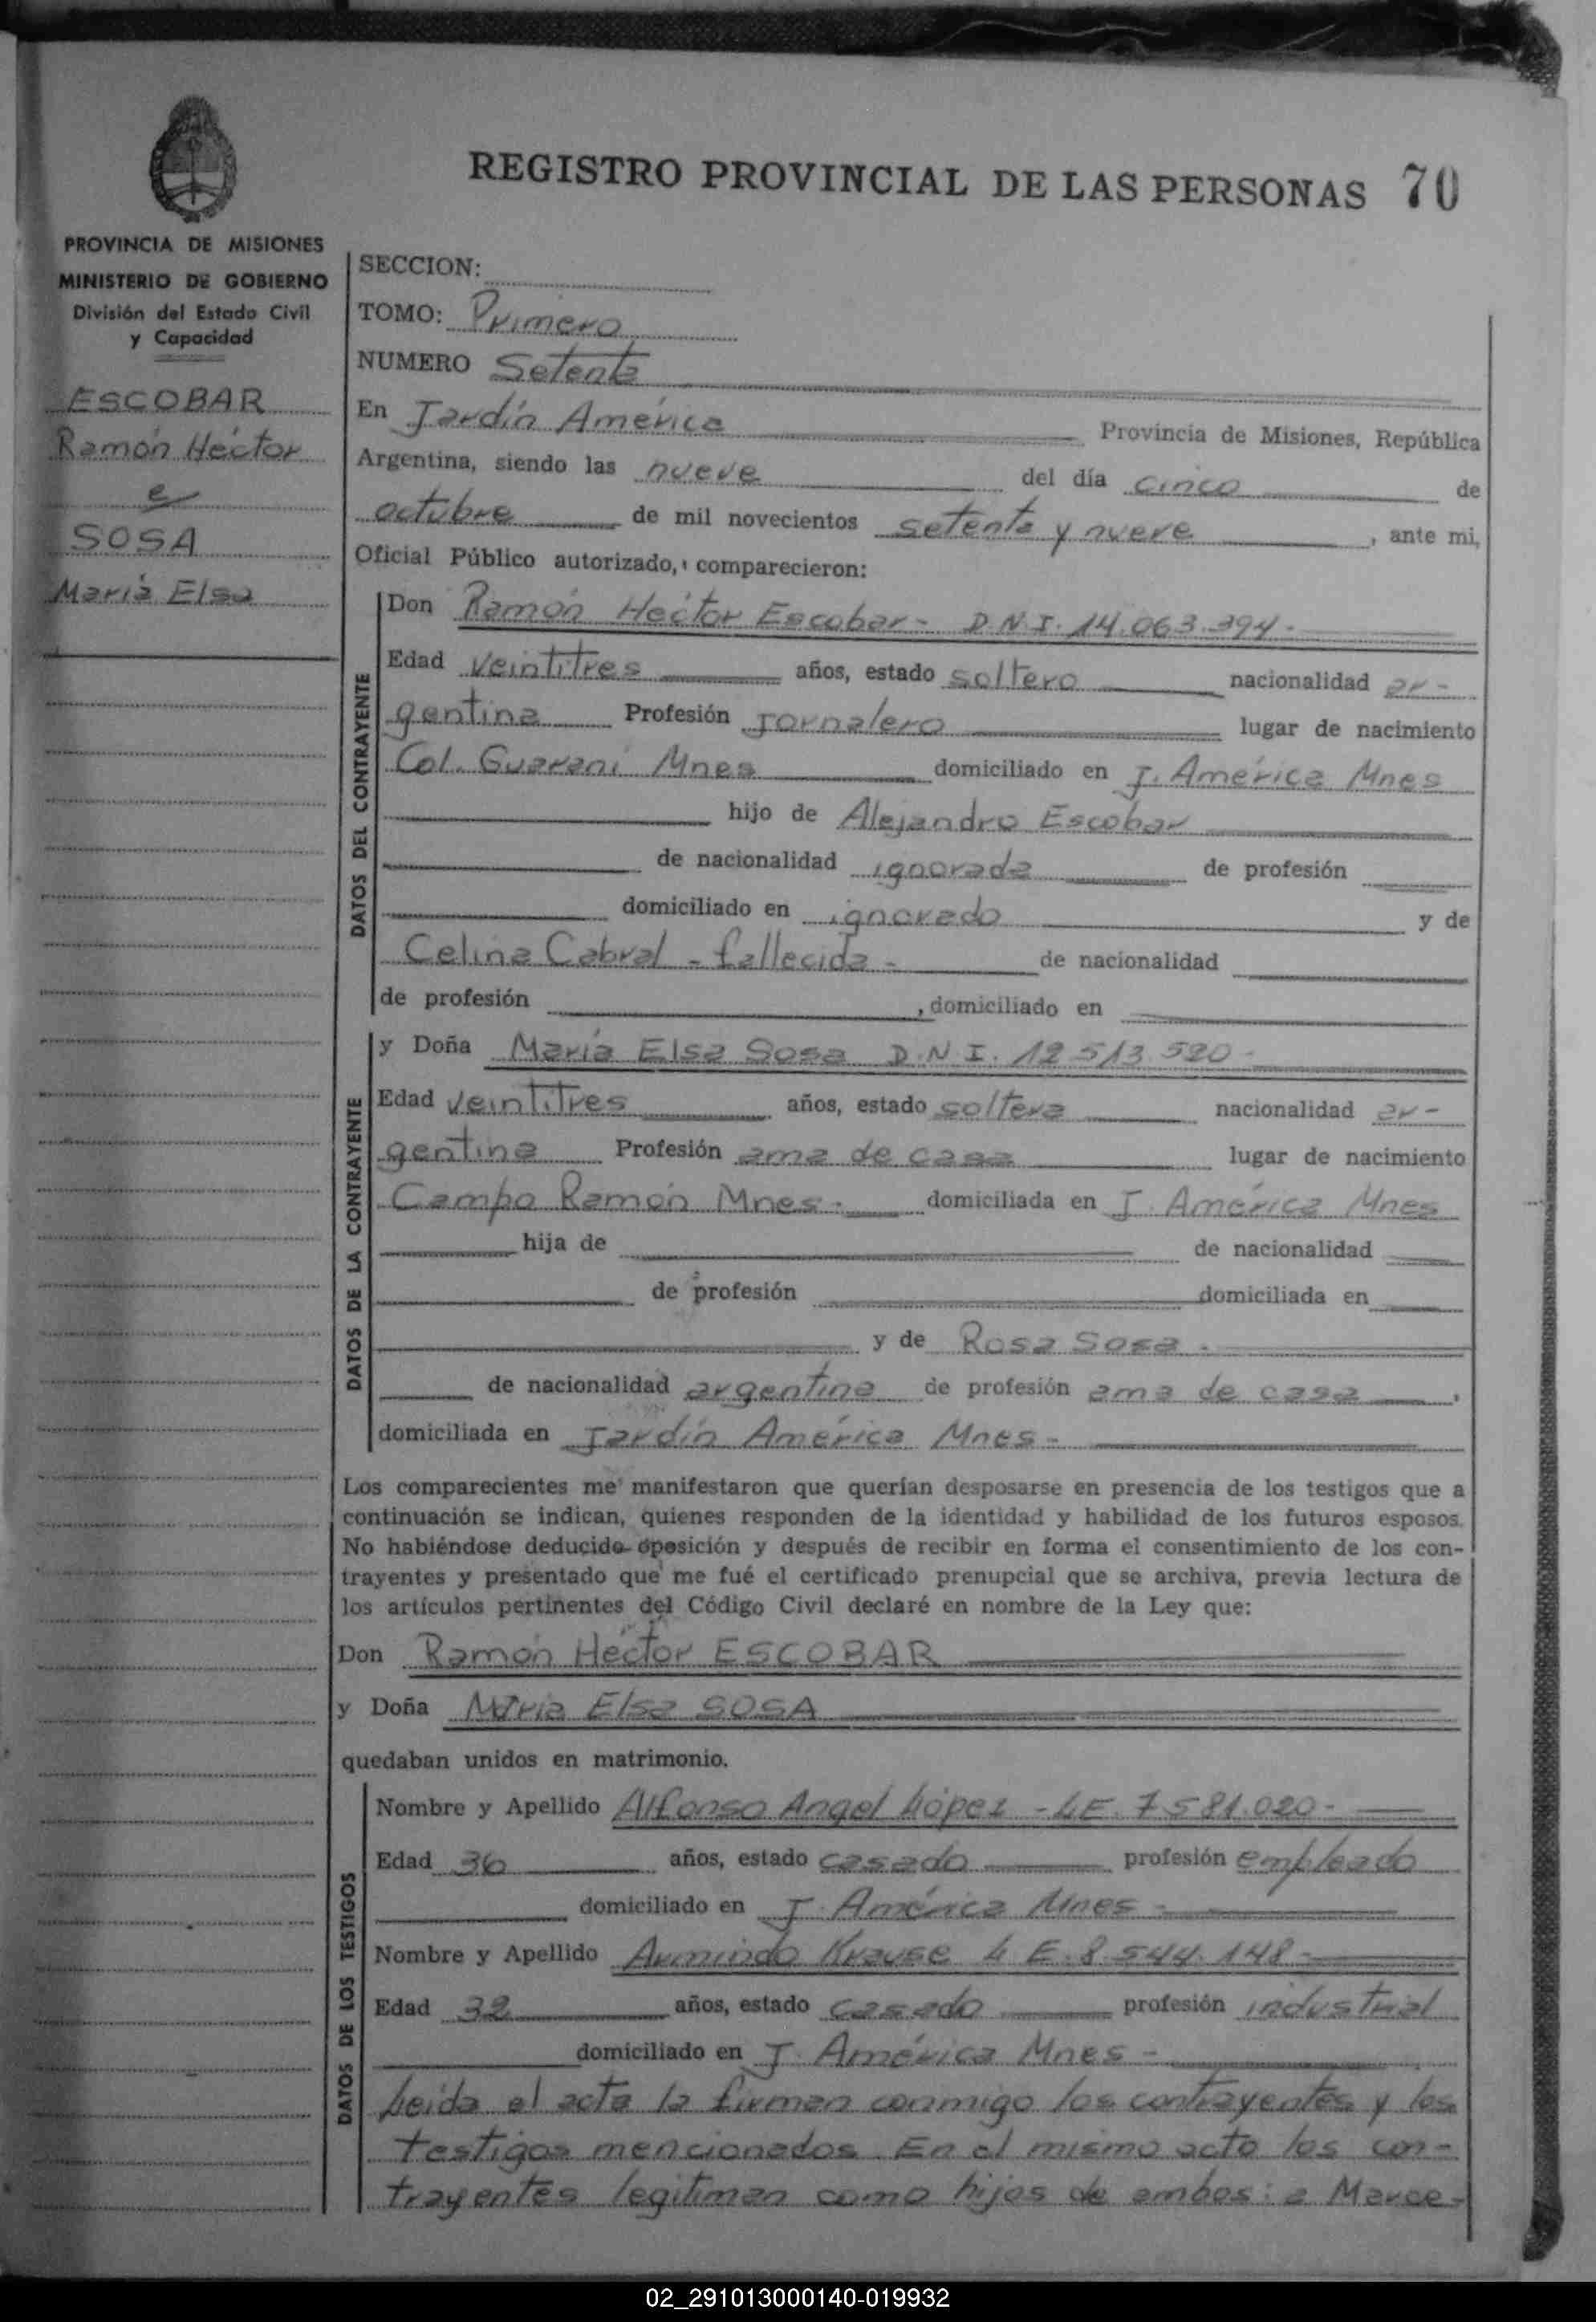 REGISTRO PROVINCIAL DE LAS PERSONAS 70
PROVINCIA DE MISIONES
MINISTERIO DE GOBIERNO
División del Estado Civil
y Capacidad
ESCOBAR
Ramón Héctor
e
SOSA
María Elsa
SECCION:
TOMO: Primero
NUMERO Setenta
En Jardín América Provincia de Misiones, República
Argentina, siendo las nueve del día cinco de
octubre de mil novecientos setenta y nueve, ante mi,
Oficial Público autorizado, comparecieron:
DATOS DEL CONTRAYENTE
Don Ramón Héctor Escobar - D.N.I. 14.063.394.
Edad veintitres años, estado soltero nacionalidad ar-
gentina Profesión Jornalero lugar de nacimiento
Col. Guaraní Mnes domiciliado en J. América Mnes
hijo de Alejandro Escobar
de nacionalidad ignorada de profesión
domiciliado en ignorado y de
Celina Cabral - fallecida - de nacionalidad
de profesión , domiciliado en
DATOS DE LA CONTRAYENTE
y Doña María Elsa Sosa D.N.I. 12.513.520-
Edad veintitres años, estado soltera nacionalidad ar-
gentina Profesión ama de casa lugar de nacimiento
Campo Ramón Mnes. domiciliada en J. América Mnes
hija de de nacionalidad
de profesión domiciliada en
y de Rosa Sosa.
de nacionalidad argentina de profesión ama de casa,
domiciliada en Jardín América Mnes-
Los comparecientes me manifestaron que querían desposarse en presencia de los testigos que a
continuación se indican, quienes responden de la identidad y habilidad de los futuros esposos.
No habiéndose deducido oposición y después de recibir en forma el consentimiento de los con-
trayentes y presentado que me fué el certificado prenupcial que se archiva, previa lectura de
los artículos pertinentes del Código Civil declaré en nombre de la Ley que:
Don Ramón Héctor ESCOBAR
y Doña María Elsa SOSA
quedaban unidos en matrimonio.
DATOS DE LOS TESTIGOS
Nombre y Apellido Alfonso Angel López - L.E. 7.581.020-
Edad 36 años, estado casado profesión empleado
domiciliado en J. América Mnes-
Nombre y Apellido Armindo Krause L.E. 8.544.148-
Edad 32 años, estado casado profesión industrial
domiciliado en J. América Mnes-
Leida el acta la firman conmigo los contrayentes y los
testigos mencionados. En el mismo acto los con-
trayentes legitiman como hijos de ambos: a Marce-
02_291013000140-019932